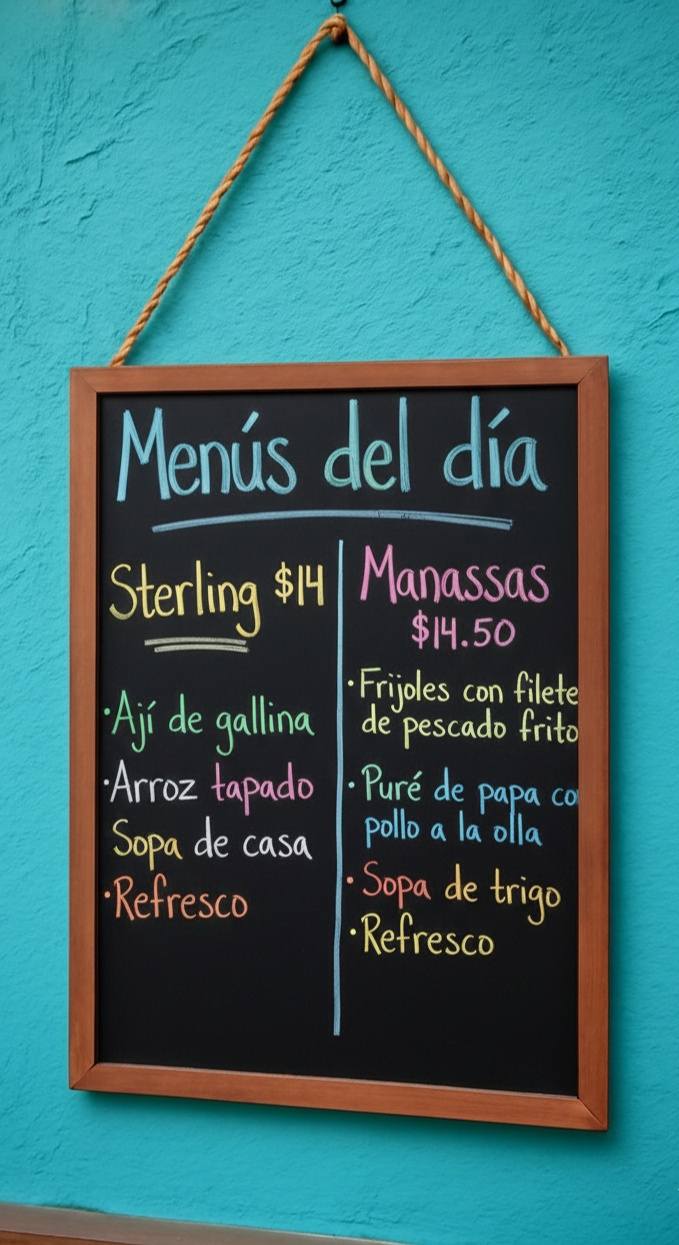 Menús del día
Sterling $14
·Ají de gallina
·Arroz tapado
Sopa de casa
·Refresco
Manassas
$14.50
·Frijoles con filete
de pescado frito
·Puré de papa co
pollo a la olla
·Sopa de trigo
·Refresco